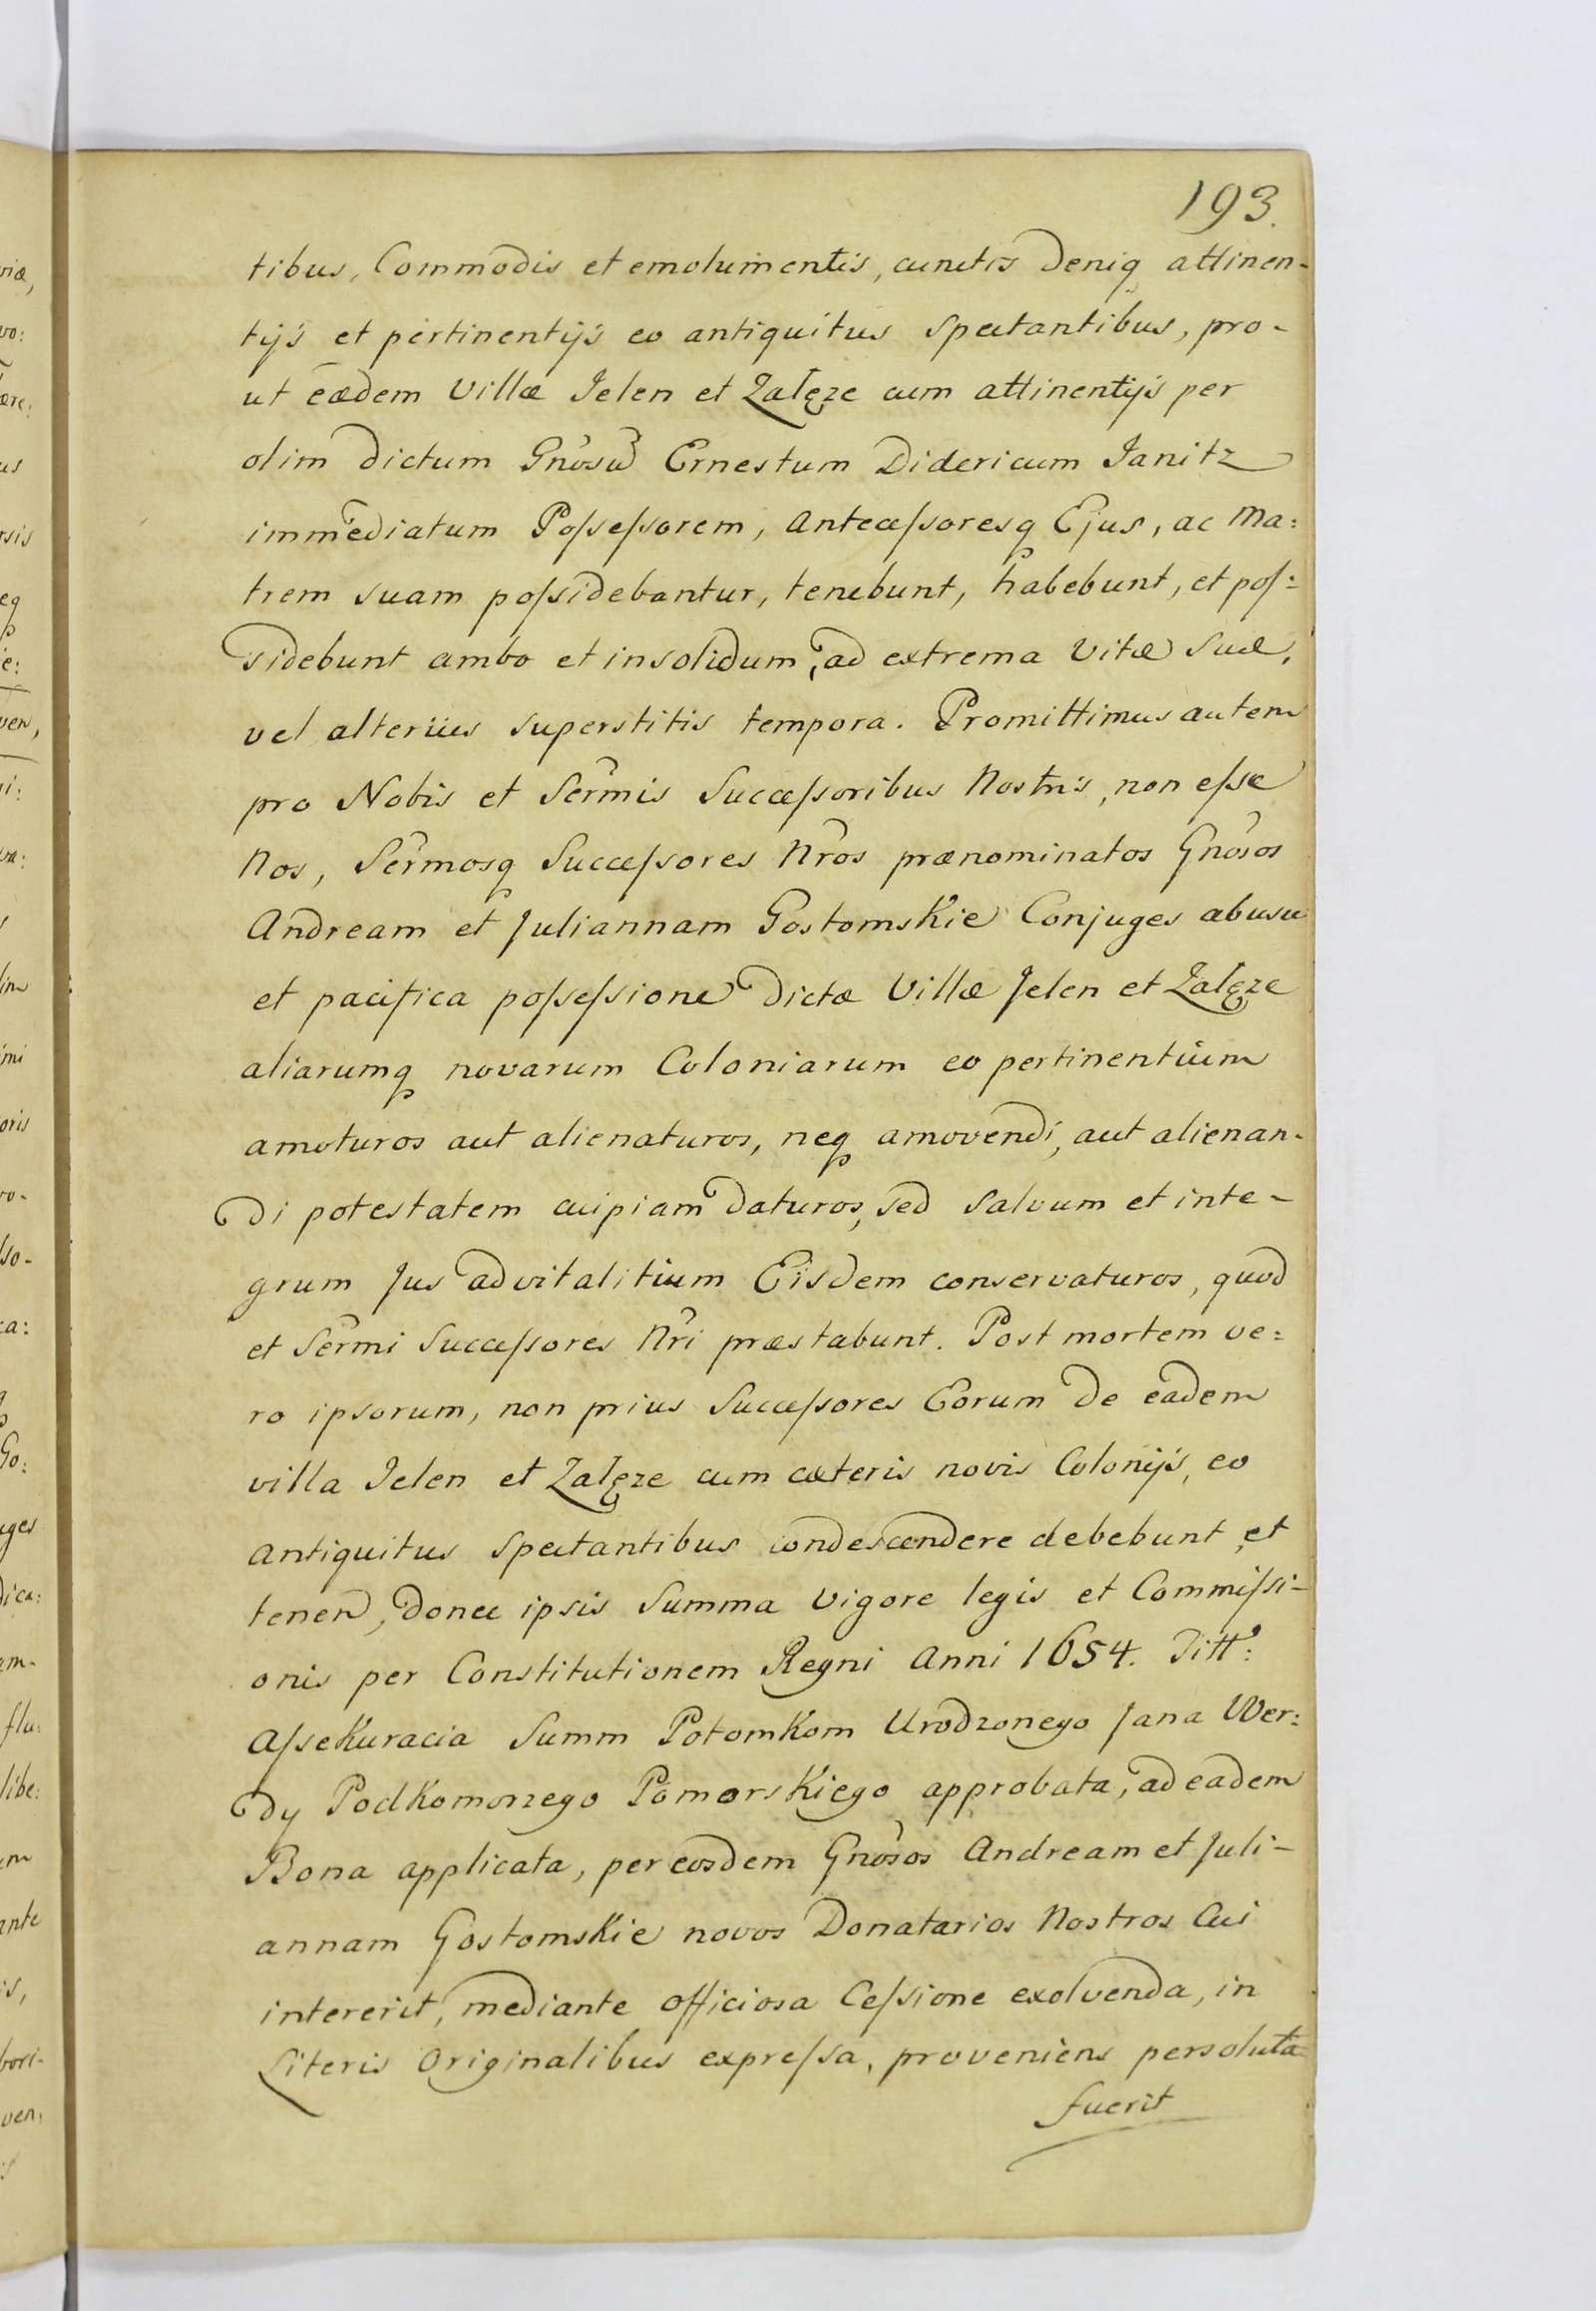 193.
tibus, Commodis et emolumentis, cunctis deniq attinen-
tijs et pertinentijs eo antiquitus spectantibus, pro-
ut eædem Villæ Jelen et Zalęze cum attinentijs per
olim dictum Gnosū Ernestum Didericum Janitz
immediatum Poſseſsorem, Anteceſsoresq Ejus, ac Ma:
trem suam poſsidebantur, tenebunt, habebunt, et poſ:
sidebunt ambo et insolidum, ad extrema vitæ suæ,
vel alterius superstitis tempora. Promittimus autem
pro Nobis et Sermis Succeſsoribus Nostris, non eſse
Nos, Sermosq Succeſsores Nros prænominatos Gnosos
Andream et Juliannam Gostomskie Conjuges ab usu
et pacifica poſseſsione dictæ Villæ Jelen et Zalęze
aliarumq novarum Coloniarum eo pertinentium
amoturos aut alienaturos, neq amovendi, aut alienan-
di potestatem cuipiam daturos, sed salvum et inte-
grum Jus advitalitium Eisdem conservaturos, quod
et Sermi Succeſsores Nri præstabunt. Post mortem ve:
ro ipsorum, non prius Succeſsores Eorum de eadem
villa Jelen et Zalęze cum cæteris novis Colonijs, eo
antiquitus spectantibus condescendere debebunt et
tenen, donec ipsis Summa vigore legis et Commiſsi-
onis per Constitutionem Regni Anni 1654. Titt:
Aſsekuracia Summ Potomkom Urodzonego Jana Wer:
dy Podkomorzego Pomorskiego approbata, ad eadem
Bona applicata, per eosdem Gnosos Andream et Juli-
annam Gostomskie novos Donatarios Nostros cui
intererit, mediante officiosa Ceſsione exolvenda, in
Literis Originalibus expreſsa, proveniens persoluta
fuerit